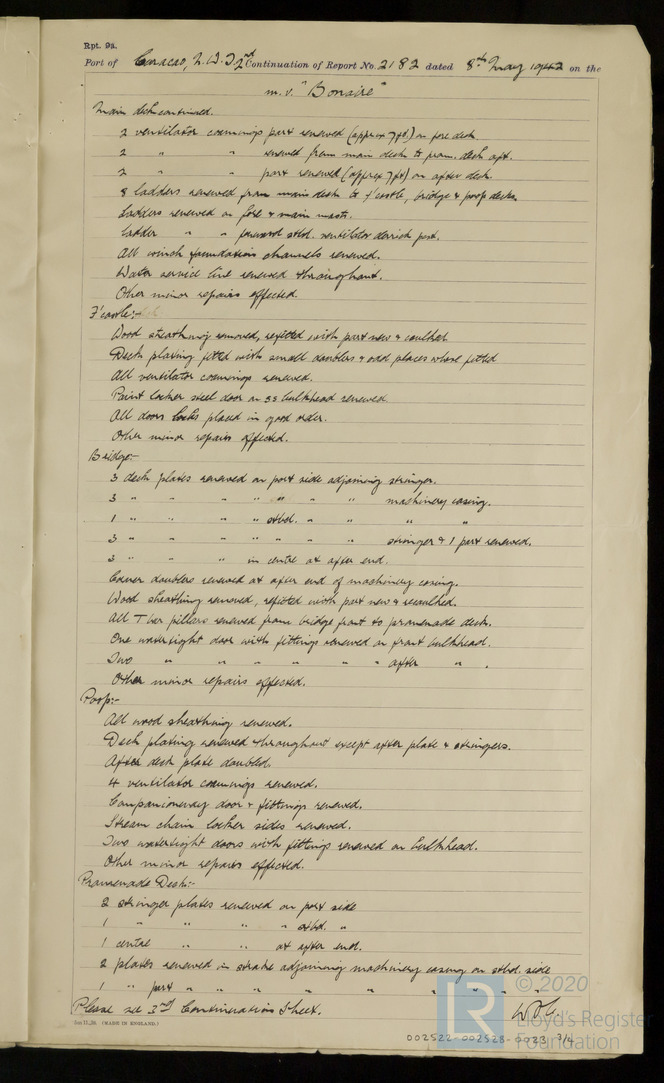 Rpt. 9a.
Port of Curacao, N.W.I. 2nd Continuation of Report No. 2182 dated 8th May 1942 on the
m.v. "Bonaire"
Main deck continued.
2 ventilator coamings part renewed (approx 7ft) on fore deck.
2 " " renewed from main deck to prom. deck aft.
2 " " part renewed (approx 7ft) on after deck.
8 ladders renewed from main deck to f'castle, bridge & poop decks.
Ladders renewed on fore & main masts.
Ladder " " forward stbd. ventilator derrick post.
All winch foundation channels renewed.
Water service line renewed throughout.
Other minor repairs effected.
F'castle:-
Wood sheathing removed, refitted with part new & caulked.
Deck plating fitted with small doublers & odd places where pitted
All ventilator coamings renewed.
Paint locker steel door on ss bulkhead renewed
All doors locks placed in good order.
Other minor repairs effected.
Bridge:-
3 deck plates renewed on port side adjoining stringer.
3 " " " " " " " machinery casing.
1 " " " " stbd. " " " "
3 " " " " " " " stringer & 1 part renewed.
3 " " " in centre at after end.
Corner doublers renewed at after end of machinery casing.
Wood sheathing removed, refitted with part new & recaulked.
All T bar pillars renewed from bridge front to promenade deck.
One watertight door with fittings renewed on front bulkhead.
Two " " " " " " after " .
Other minor repairs effected.
Poop:-
All wood sheathing renewed.
Deck plating renewed throughout except after plate & stringers.
After deck plate doubled.
4 ventilator coamings renewed.
Companionway door & fittings renewed.
Stream chain locker sides renewed.
Two watertight doors with fittings renewed on bulkhead.
Other minor repairs effected.
Promenade Deck:-
2 stringer plates renewed on port side
1 " " " " stbd. "
1 centre " " at after end.
2 plates renewed in strake adjoining machinery casing on stbd. side
1 " part " " " " " " " "
Please see 3rd Continuation Sheet.
(MADE IN ENGLAND.)
© 2020
LR
Lloyd's Register
Foundation
002522-002528-0023 3/4